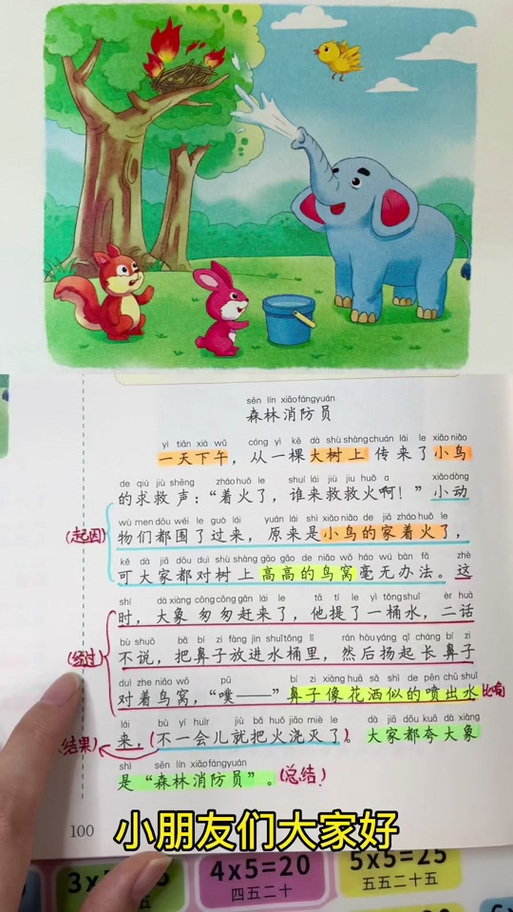 sēn lín xiāofángyuán
森林消防员
yì tiān xià wǔ cóng yì kē dà shù shàng chuán lái le xiǎo niǎo
一天下午，从一棵大树上传来了小鸟
de qiú jiù shēng zháo huǒ le shuí lái jiù jiu huǒ a xiǎo dòng
的求救声：“着火了，谁来救救火啊！”小动
wù men dōu wéi le guò lái yuán lái shì xiǎo niǎo de jiā zháo huǒ le
(起因) 物们都围了过来，原来是小鸟的家着火了，
kě dà jiā dōu duì shù shàng gāo gāo de niǎo wō háo wú bàn fǎ zhè
可大家都对树上高高的鸟窝毫无办法。这
shí dà xiàng cōng cōng gǎn lái le tā tí le yì tǒng shuǐ èr huà
时，大象匆匆赶来了，他提了一桶水，二话
bù shuō bǎ bí zi fàng jìn shuǐ tǒng lǐ rán hòu yáng qǐ cháng bí zi
(经过) 不说，把鼻子放进水桶里，然后扬起长鼻子
duì zhe niǎo wō pū bí zi xiàng huā sǎ shì de pēn chū shuǐ
对着鸟窝，“噗——”鼻子像花洒似的喷出水 比喻
lái bù yí huìr jiù bǎ huǒ jiāo miè le dà jiā dōu kuā dà xiàng
(结果) 来，(不一会儿就把火浇灭了)。大家都夸大象
shì sēn lín xiāofángyuán
是“森林消防员”。(总结)
100
小朋友们大家好
4x5=20
四五二十
5x5=25
五五二十五